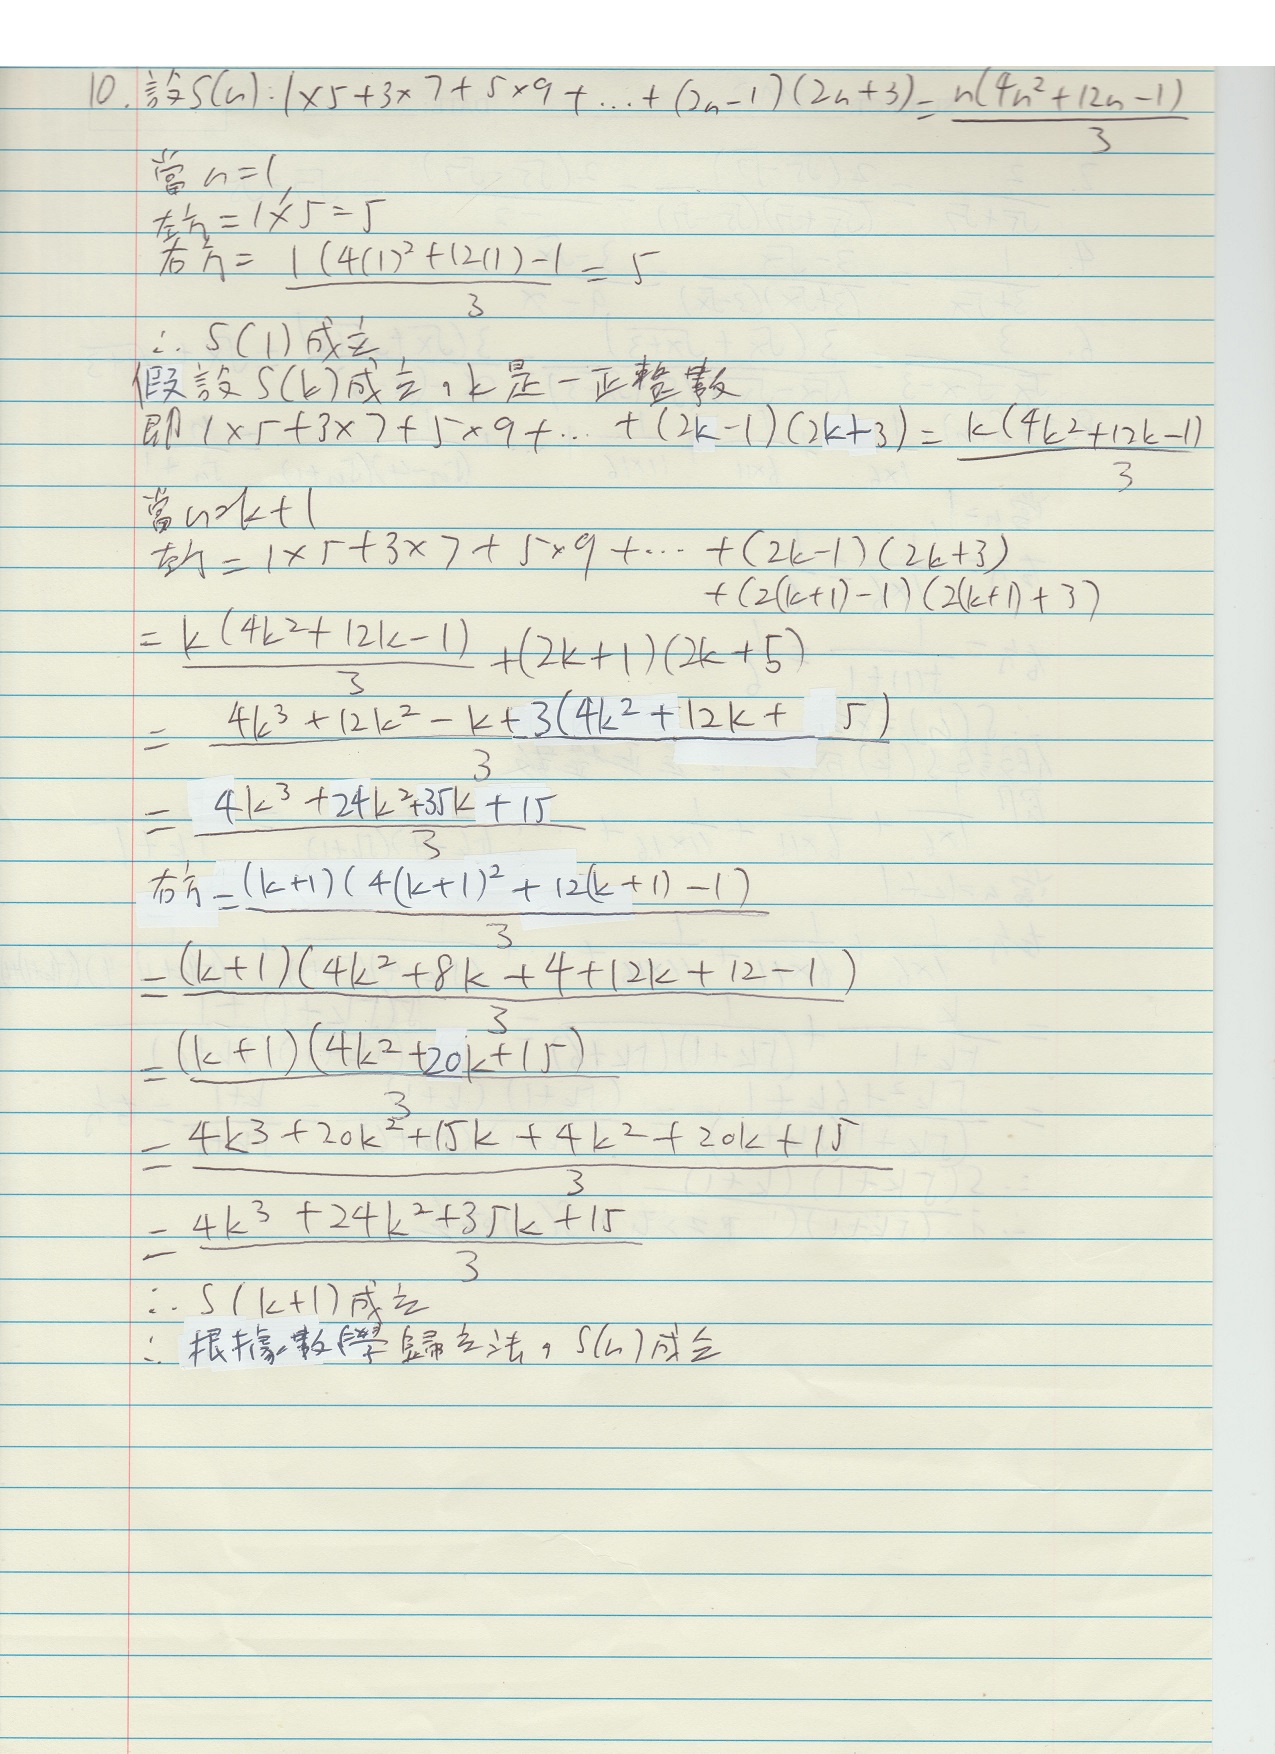 10. 設S(n): 1×5+3×7+5×9+...+(2n-1)(2n+3)=n(4n²+12n-1)/3
當n=1,
左方=1×5=5
右方=1(4(1)²+12(1)-1/3=5
∴ S(1)成立
假設S(k)成立,k是一正整數
即1×5+3×7+5×9+...+(2k-1)(2k+3)=k(4k²+12k-1)/3
當n=k+1
左方=1×5+3×7+5×9+...+(2k-1)(2k+3)
+(2(k+1)-1)(2(k+1)+3)
=k(4k²+12k-1)/3+(2k+1)(2k+5)
=4k³+12k²-k+3(4k²+12k+5)/3
=4k³+24k²+35k+15/3
右方=(k+1)(4(k+1)²+12(k+1)-1)/3
=(k+1)(4k²+8k+4+12k+12-1)/3
=(k+1)(4k²+20k+15)/3
=4k³+20k²+15k+4k²+20k+15/3
=4k³+24k²+35k+15/3
∴ S(k+1)成立
∴ 根據數學歸立法,S(n)成立